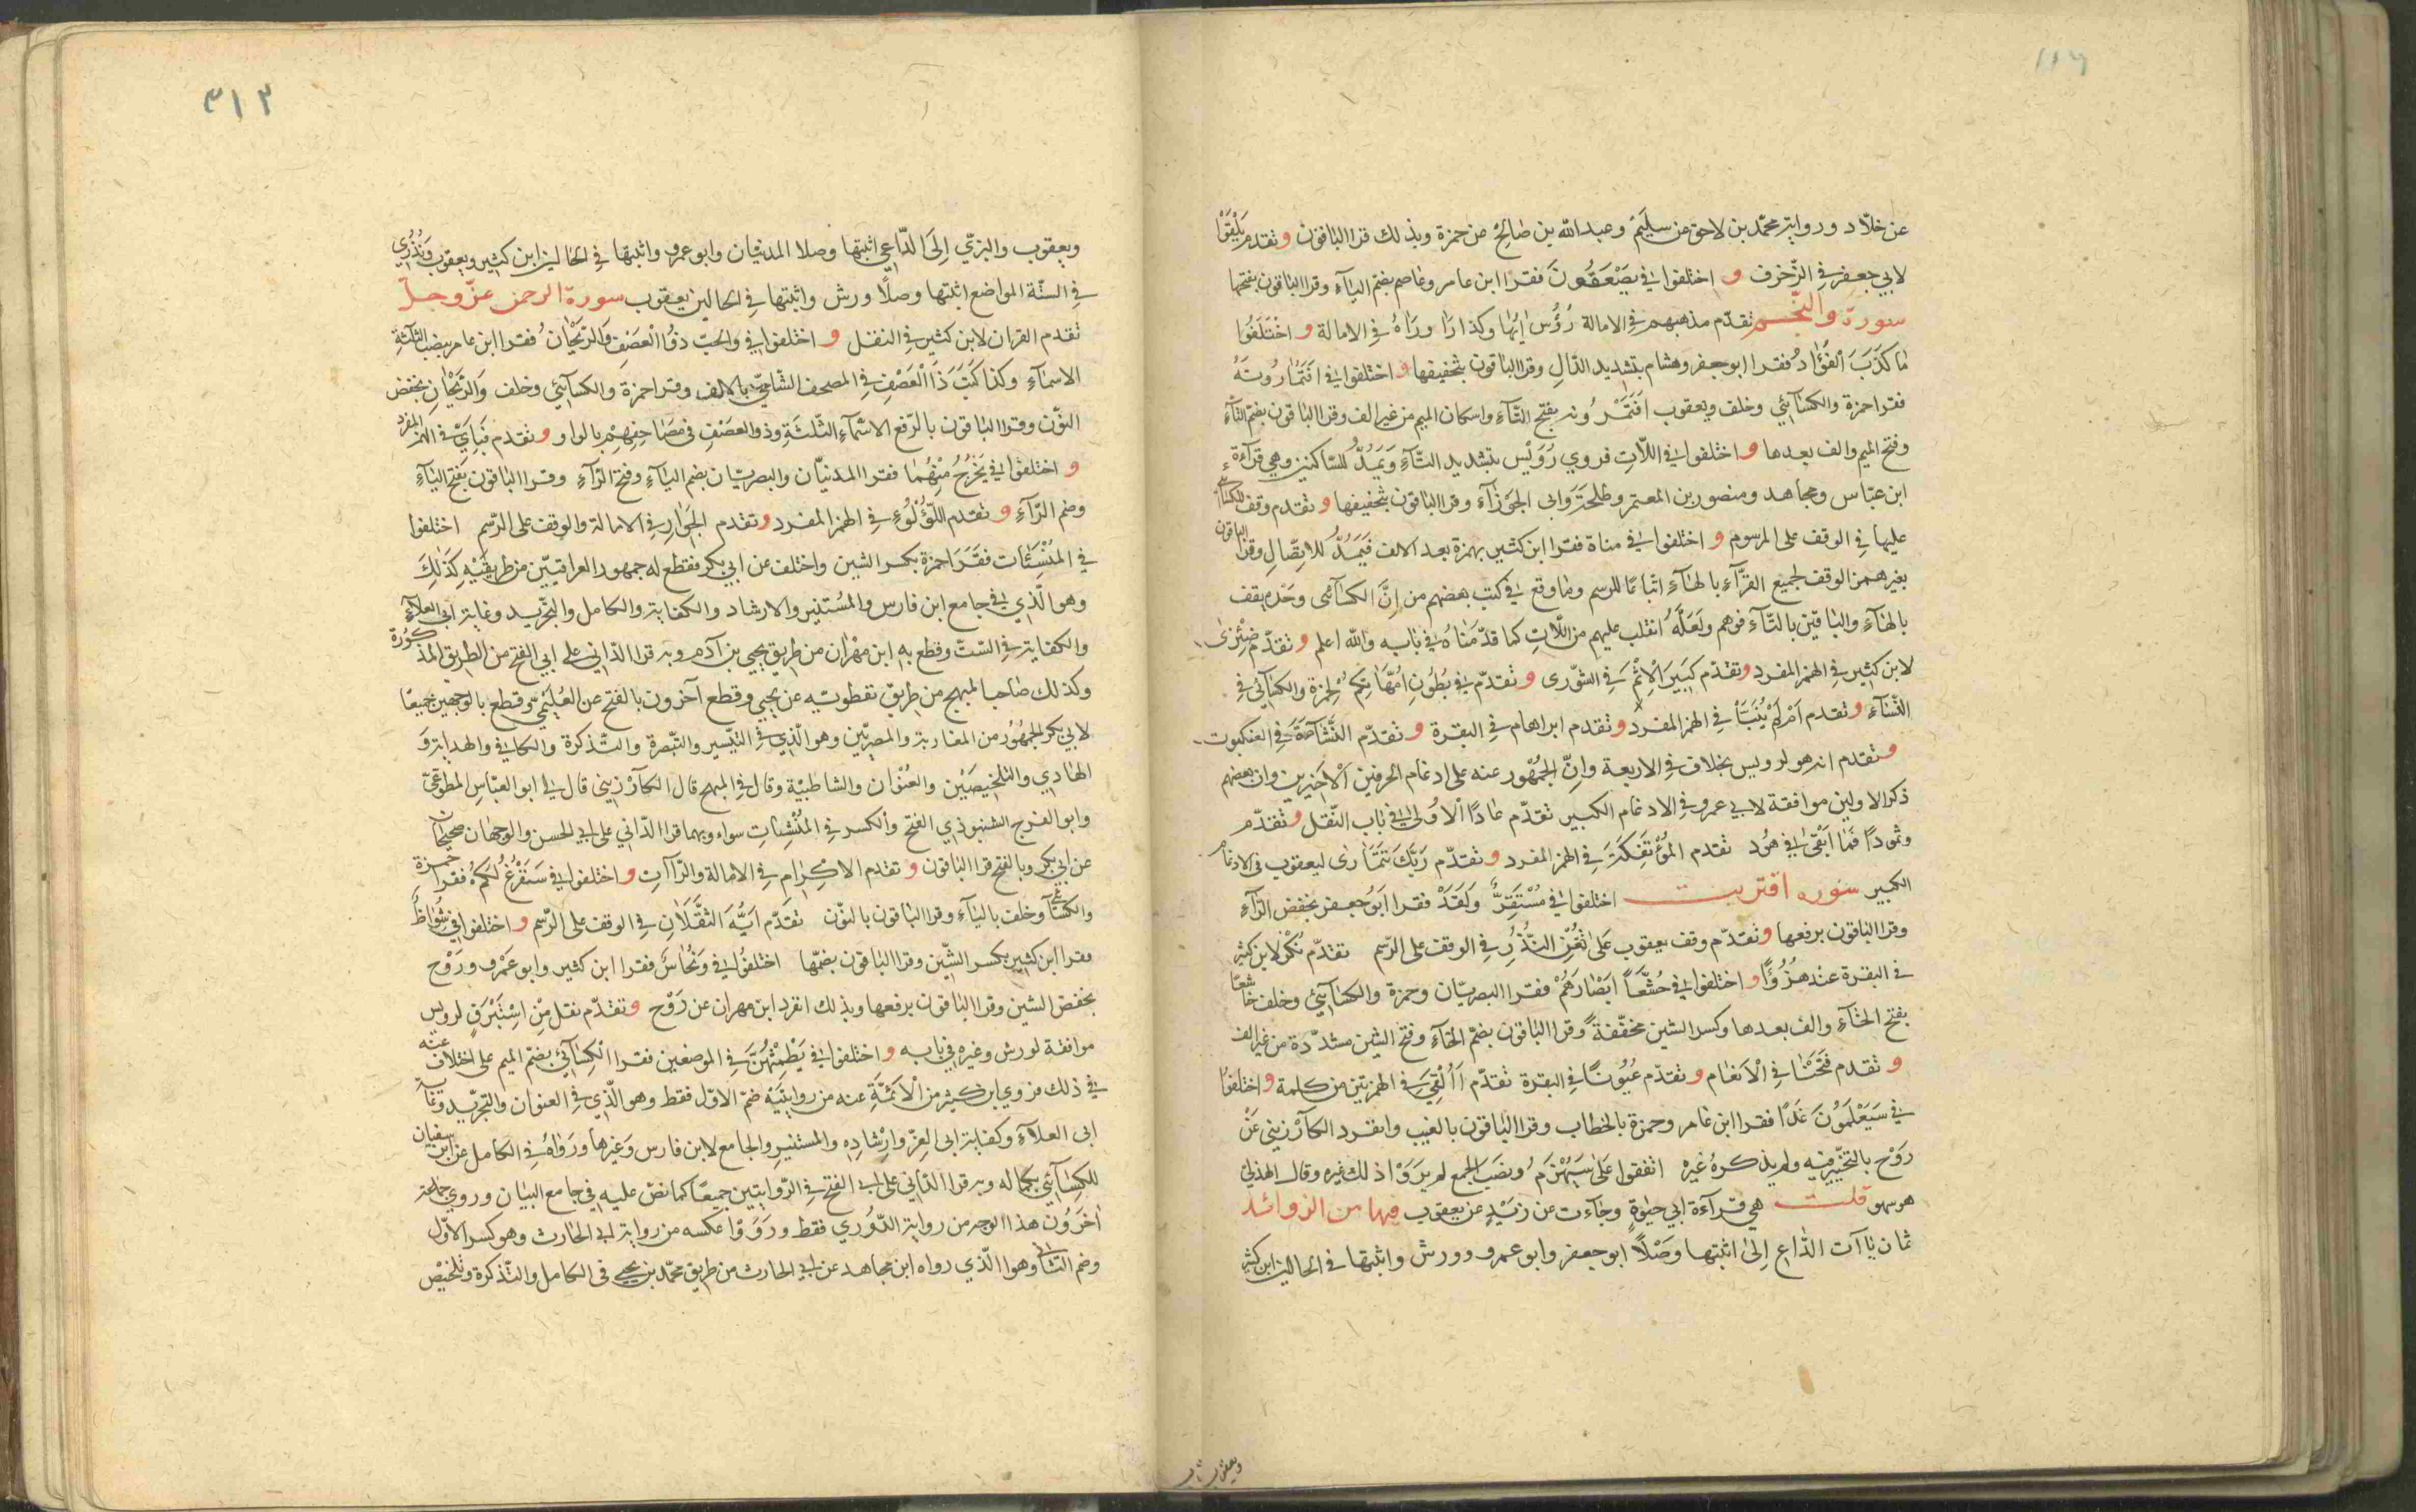 عن خلّاد ورواية محمّد بن لاحق عن سليم وعبد الله بن صالح عن حمزة وبذلك قرا الباقون وتقدم يلقوا
لابي جعفر في الزّخرف و اختلفوا في يصعقون فقرا ابن عامر وعاصم بضم اليآء وقرا الباقون بفتحها
سورة والنّجم تقدّم مذهبهم في الامالة رؤس ايها وكذا رَاٰ ورَاهُ في الامالة و اختلفوا
ما كذب الفؤاد فقرا ابو جعفر وهشام بتشديد الذّال وقرا الباقون بتخفيفها و اختلفوا في افتمارونه
فقرا حمزة والكسآئي وخلف ويعقوب افتمرونه بفتح التّآء واسكان الميم من غير الف وقرا الباقون بضمّ التّآء
وفتح الميم والف بعدها و اختلفوا في اللّات فروي رويس بتشديد التّآء ويمدّ للسّاكنين وهي قرآءة
ابن عبّاس ومجاهد ومنصور بن المعتمر وطلحة وابى الجوزآء وقرا الباقون بتخفيفها و تقدم وقف الكسآئي
عليها في الوقف على المرسوم و اختلفوا في مناة فقرا ابن كثير بهمزة بعد الالف فيمدّ للاتّصال وقرا الباقون
بغير همز الوقف لجميع القرّآء بالهآء اتباعًا للرسم وما وقع في كتب بعضهم من انّ الكسآئى وحده يقف
بالهآء والباقين بالتّآء فوهم ولعلّه انقلب عليهم من اللّات كما قدّمناه في بابه والله اعلم و تقدّم ضئزى
لابن كثير في الهمز المفرد و تقدّم كبير الاثم في الشّورى و تقدّم في بطون امّهاتكم لحمزة والكسآئى في
النّسآء و تقدم ام لم ينبّأ في الهمز المفرد و تقدم ابراهام في البقرة و تقدّم النّشاة في العنكبوت
و تقدم انه هو لرويس بخلاف في الاربعة وانّ الجمهور عنه على ادغام الحرفين الاخيرين وان بعضهم
ذكر الاولين موافقة لابي عمرو في الادغام الكبير تقدّم عادًا الاولى في باب النّقل و تقدّم
وثمودًا فما ابقى في هود تقدم المؤتفكة في الهمز المفرد و تقدّم ربّك تتمارى ليعقوب في الادغام
الكبير سورة اقتربت اختلفوا في مستقرّ ولقد فقرا ابو جعفر بخفض الرّآء
وقرا الباقون برفعها و تقدّم وقف يعقوب على تغن النّذر في الوقف على الرّسم تقدّم نكر لابن كثير
في البقرة عند هزوًا و اختلفوا في خشّعًا ابصارهم فقرا البصريّان وحمزة والكسآئي وخلف خاشعًا
بفتح الخآء والف بعدها وكسر الشين مخفّفة وقرا الباقون بضمّ الخآء وفتح الشين مشدّدة من غير الف
و تقدم فتحنا في الانعام و تقدّم عيونًا في البقرة تقدّم أالقي في الهمزتين من كلمة و اختلفوا
في سيعلمون غدًا فقرا ابن عامر وحمزة بالخطاب وقرا الباقون بالغيب وانفرد الكآرزيني عن
روح بالتخيير فيه ولم يذكره غيره اتفقوا على سيهزم ونصب الجمع لم يروا ذلك غيره وقال الهذلي
هو سهو قلت هي قرآءة ابي حيوة وجآءت عن زيد عن يعقوب فيها من الزوائد
ثمان يٰاآت الدّاع الى اثبتها وصلًا ابو جعفر وابو عمرو وورش واثبتها في الحالين ابن كثير
ويعقوب
٣١٣
ويعقوب والبزّي الى الدّاعي اثبتها وصلا المدنيّان وابو عمرو واثبتها في الحالين ابن كثير ويعقوب ونذري
في الستّة المواضع اثبتها وصلًا ورش واثبتها في الحالين يعقوب سورة الرحمن عزّ وجلّ
تقدم القران لابن كثير في النقل و اختلفوا في والحبّ ذو العصف والرّيحان فقرا ابن عامر بنصب الثلثة
الاسمآء وكذا كتب ذا العصف في المصحف الشّاميّ بالالف وقرا حمزة والكسآئي وخلف والرّيحان بخفض
النّون وقرا الباقون بالرّفع الاسمآء الثّلثة وذو العصف في مصاحفهم بالواو و تقدم فبايّ في الهمز المفرد
و اختلفوا في يخرج منهما فقرا المدنيّان والبصريّان بضم اليآء وفتح الرّآء وقرا الباقون بفتح اليآء
وضم الرّآء و تقدم اللّؤلؤ في الهمز المفرد و تقدم الجوار في الامالة والوقف على الرّسم اختلفوا
في المنشئات فقرا حمزة بكسر الشين واختلف عن ابي بكر فقطع له جمهور العراقيّين من طريقيه كذلك
وهو الّذي في جامع ابن فارس والمستنير والارشاد والكفاية والكامل والتجريد وغاية ابي العلآء
والكفاية في السّتّ وقطع به ابن مهران من طريق يحيي بن آدم وبه قرا الدّاني على ابي الفتح من الطريق المذكورة
وكذلك صاحب المبهج من طريق نفطويه عن يحيي وقطع آخرون بالفتح عن العليميّ وقطع بالوجهين جميعًا
لابي بكر الجمهور من المغاربة والمصريّين وهو الّذي في التّيسير والتّبصرة والتّذكرة والكافي والهداية و
الهادي والتلخيصين والعنوان والشاطبيّة وقال في المبهج قال الكآرزيني قال لي ابو العبّاس المطوّعيّ
وابو الفرج الشنبوذي الفتح والكسر في المنشات سواء وبهما قرا الدّاني على ابي الحسن والوجهان صحيحان
عن ابي بكر وبالفتح قرا الباقون و تقدم الاكرام في الامالة والرّاآت و اختلفوا في سنفرغ لكم فقرا حمزة
والكسآئي وخلف باليآء وقرا الباقون بالنّون تقدّم ايّه الثقلان في الوقف على الرّسم و اختلفوا في شواظ
فقرا ابن كثير بكسر الشّين وقرا الباقون بضمّها اختلفوا في ونحاس فقرا ابن كثير وابو عمرو وروح
بخفض الشين وقرا الباقون برفعها وبذلك انفرد ابن مهران عن روح و تقدّم نقل من استبرق لرويس
موافقة لورش وغيره في بابه و اختلفوا في يطمثهنّ في الموضعين فقرا الكسآئي بضمّ الميم على اختلاف عنه
في ذلك فروي كثير من الائمّة عنه من روايتيه ضمّ الاوّل فقط وهو الّذي في العنوان والتجريد وغاية
ابى العلآء وكفاية ابى العزّ وارشاده والمستنير والجامع لابن فارس وغيرها ورواه في الكامل عن ابن سفيان
للكسآئي بكماله وبه قرا الدّاني على ابي الفتح في الرّوايتين جميعًا كما نصّ عليه في جامع البيان وروي جماعة
اخرون هذا الوجه من رواية الدّوري فقط ورووا عكسه من رواية ابي الحارث وهو كسر الاوّل
وضم الثاني وهو الّذي رواه ابن مجاهد عن ابي الحارث من طريق محمّد بن يحيي في الكامل والتّذكرة وتلخيص